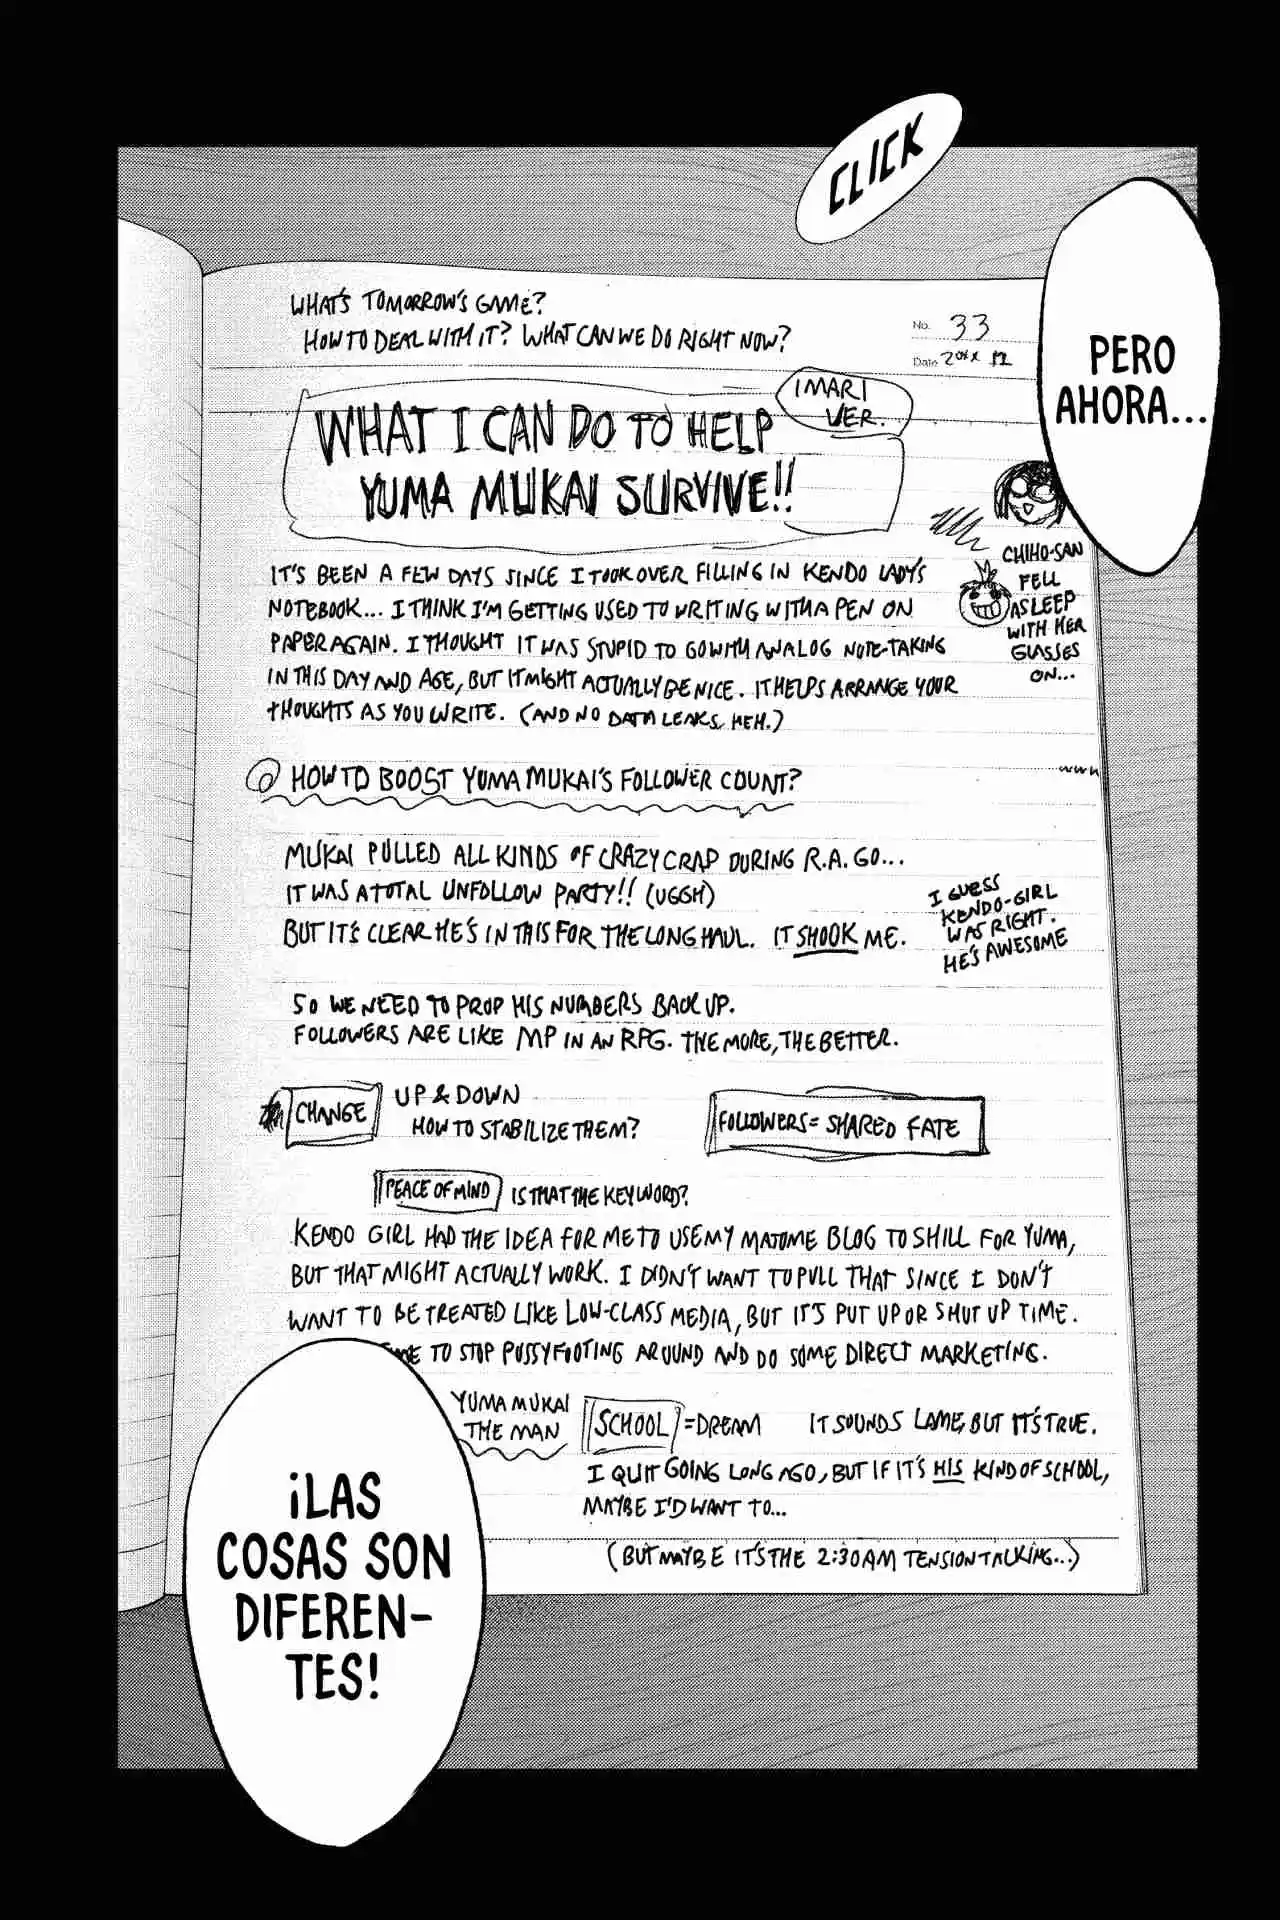 CLICK
PERO
AHORA...
WHAT'S TOMORROW'S GAME?
HOW TO DEAL WITH IT? WHAT CAN WE DO RIGHT NOW?
No. 33
Date 20XX 12
IMARI
VER.
WHAT I CAN DO TO HELP
YUMA MUKAI SURVIVE!!
CHIHO-SAN
FELL
ASLEEP
WITH HER
GLASSES
ON...
IT'S BEEN A FEW DAYS SINCE I TOOK OVER FILLING IN KENDO LADY'S
NOTEBOOK... I THINK I'M GETTING USED TO WRITING WITH A PEN ON
PAPER AGAIN. I THOUGHT IT WAS STUPID TO GO WITH ANALOG NOTE-TAKING
IN THIS DAY AND AGE, BUT IT MIGHT ACTUALLY BE NICE. IT HELPS ARRANGE YOUR
THOUGHTS AS YOU WRITE. (AND NO DATA LEAKS, HEH.)
HOW TO BOOST YUMA MUKAI'S FOLLOWER COUNT?
www
MUKAI PULLED ALL KINDS OF CRAZY CRAP DURING R.A. GO...
IT WAS A TOTAL UNFOLLOW PARTY!! (UGGH)
BUT IT'S CLEAR HE'S IN THIS FOR THE LONG HAUL. IT SHOOK ME.
I GUESS
KENDO-GIRL
WAS RIGHT.
HE'S AWESOME
SO WE NEED TO PROP HIS NUMBERS BACK UP.
FOLLOWERS ARE LIKE MP IN AN RPG. THE MORE, THE BETTER.
CHANGE
UP & DOWN
HOW TO STABILIZE THEM?
FOLLOWERS = SHARED FATE
PEACE OF MIND IS THAT THE KEYWORD?
KENDO GIRL HAD THE IDEA FOR ME TO USE MY MATOME BLOG TO SHILL FOR YUMA,
BUT THAT MIGHT ACTUALLY WORK. I DIDN'T WANT TO PULL THAT SINCE I DON'T
WANT TO BE TREATED LIKE LOW-CLASS MEDIA, BUT IT'S PUT UP OR SHUT UP TIME.
TO STOP PUSSYFOOTING AROUND AND DO SOME DIRECT MARKETING.
YUMA MUKAI
THE MAN
SCHOOL = DREAM IT SOUNDS LAME, BUT IT'S TRUE.
I QUIT GOING LONG AGO, BUT IF IT'S HIS KIND OF SCHOOL,
MAYBE I'D WANT TO...
(BUT MAYBE IT'S THE 2:30AM TENSION TALKING...)
¡LAS
COSAS SON
DIFEREN-
TES!